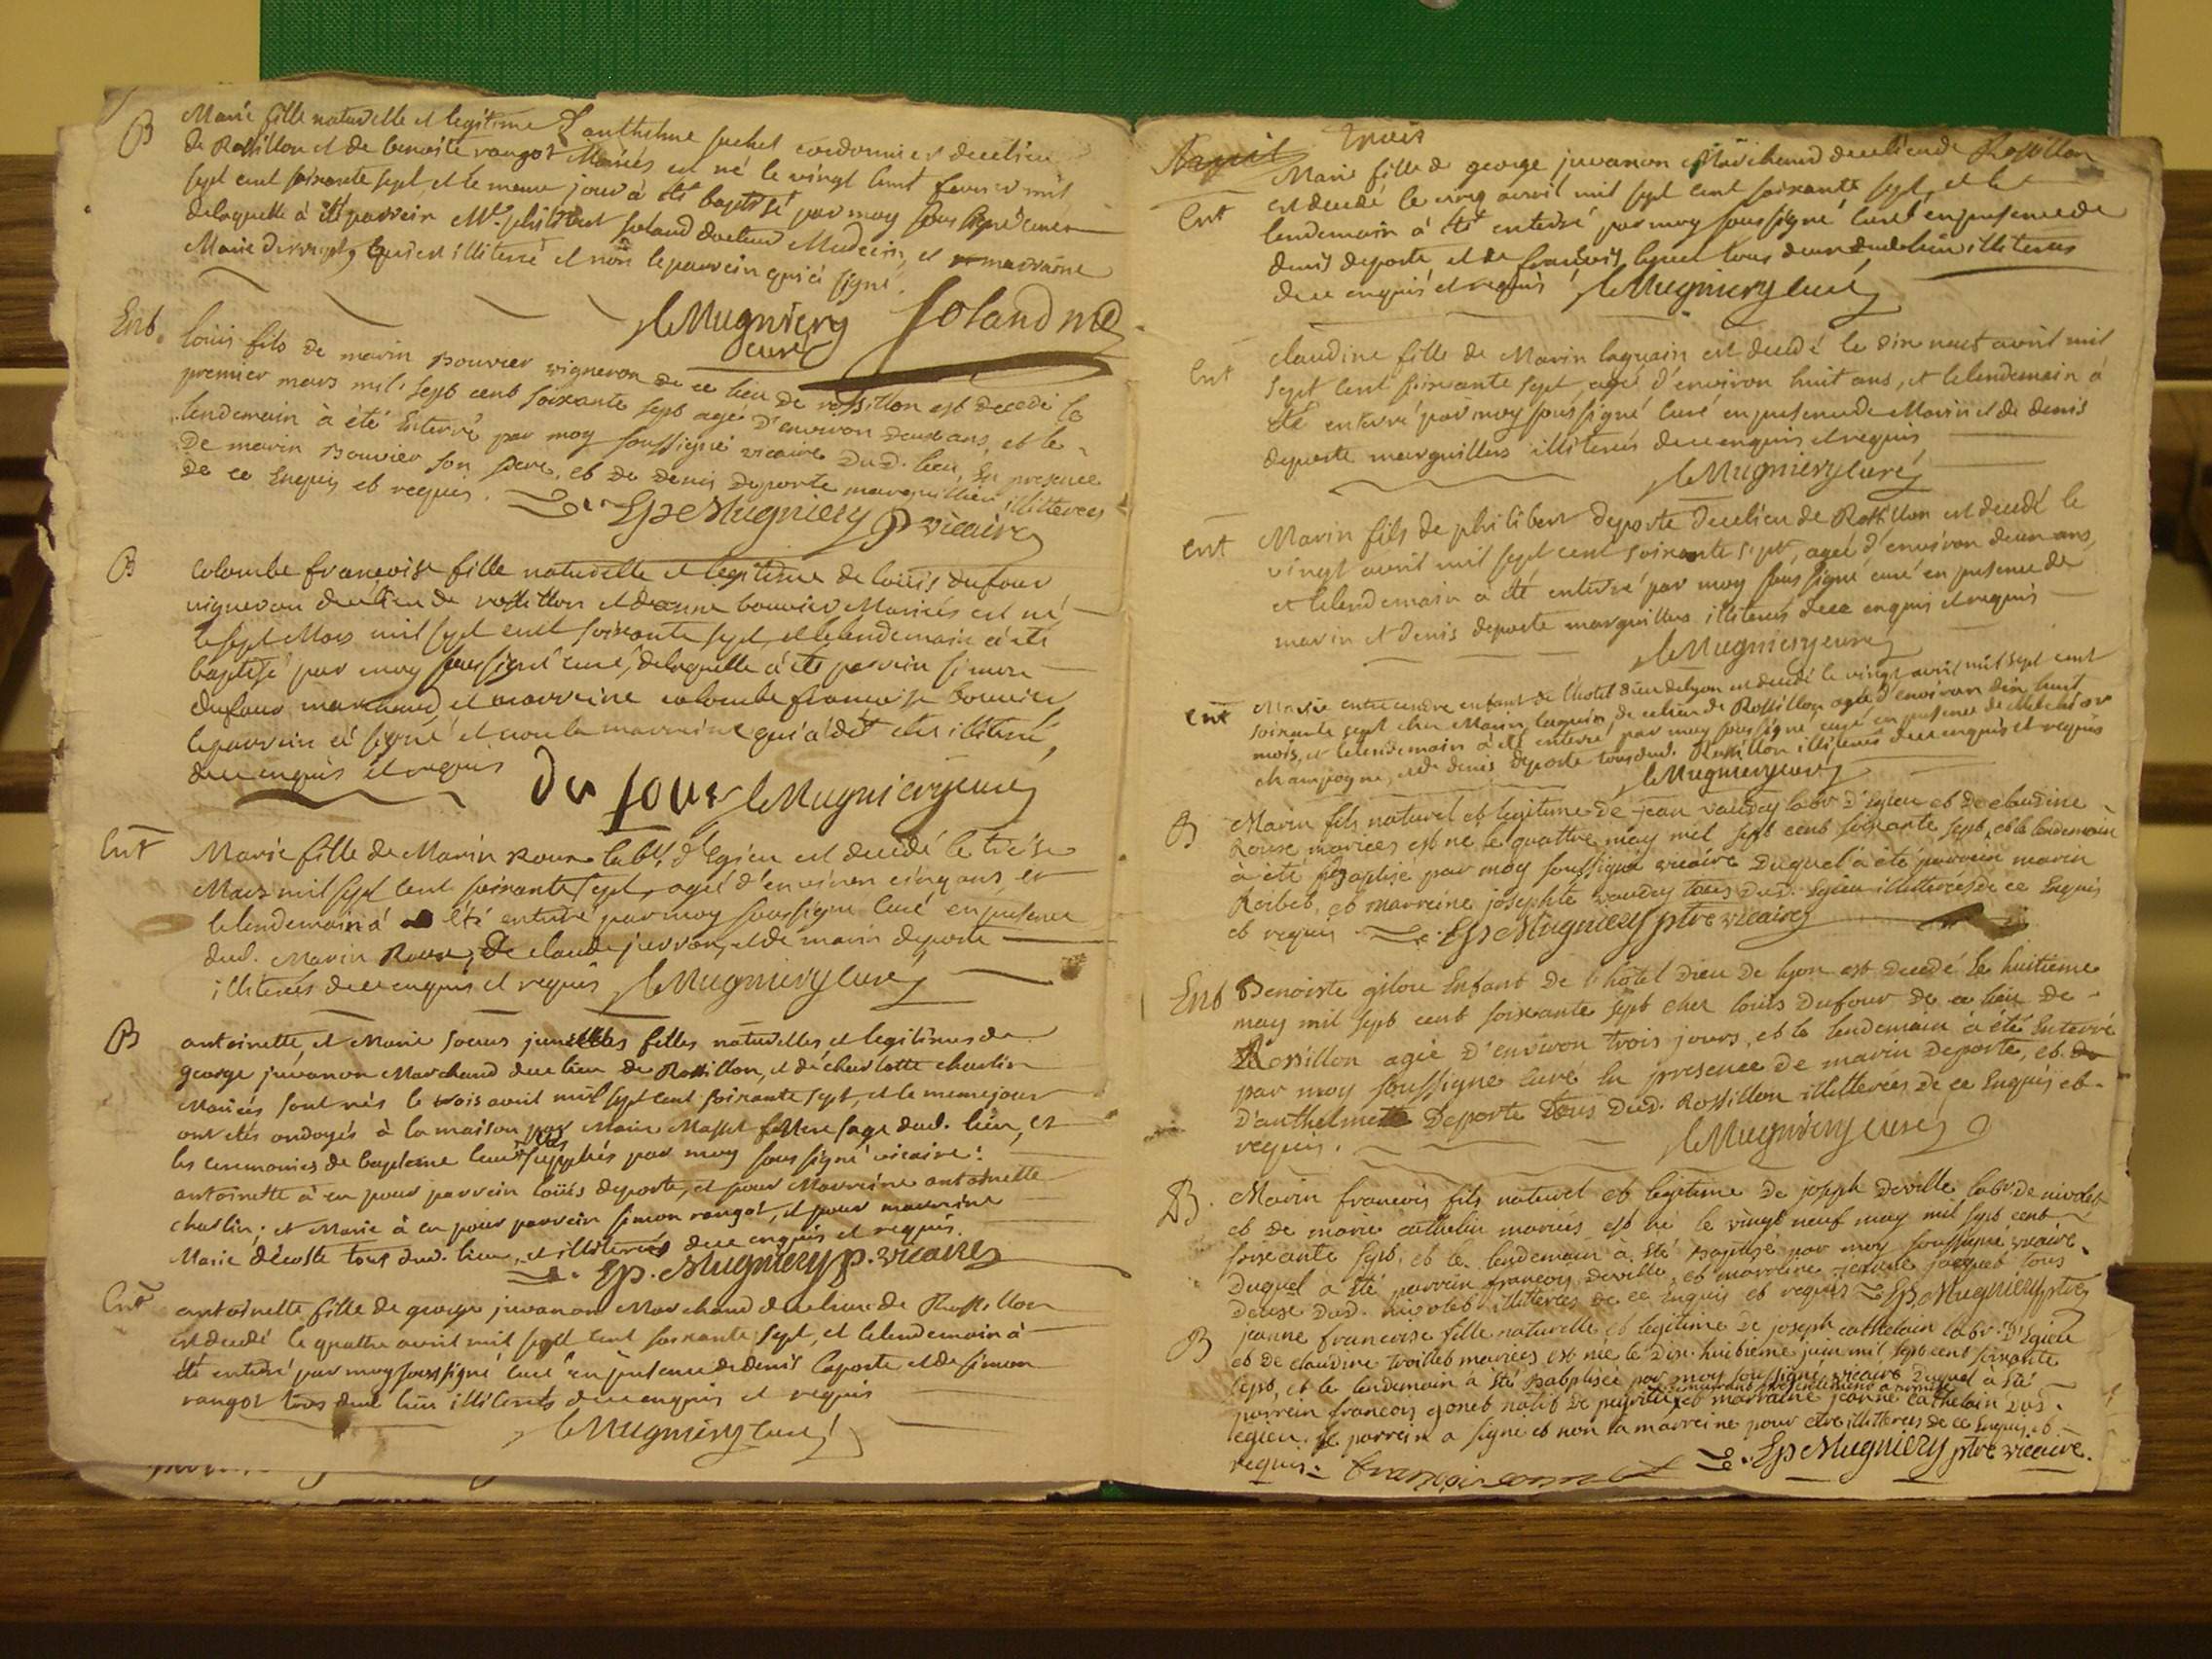 B Marie fille naturelle et legitime d'anthelme suchet cordonnier de ce lieu
de Rossillon et de benoite rangot Mariés est né le vingt huit fevrier mil
sept cent soixante sept, et le meme jour à été baptisé par moy sous signé curé
delaquelle à été parrein Mr. philibert soland docteur Medecin, et marraine
Marie qui est illiteré et non le parrein qui à signé.
leMugniery Soland md
curé
Ent. louis fils de marin Bouvier vigneron de ce lieu de rossillon est decedé le
premier mars mil sept cent soixante sept agé d'environ deux ans, et le
lendemain à été Enterré par moy soussigné vicaire dud. lieu, En presence
De marin Bouvier son pere, et de denis deporte marguillier illitterees
de ce Enquis et requis. Mugniery p vicaire
B Colombe françoise fille naturelle et legitime de loüis dufour
vigneron de ce lieu de rossillon et danne bouvier Mariés est né
le sept Mars mil sept cent soixante sept, et lelendemain à été
baptisé par moy sous signé curé, delaquelle à été parrein simon
dufour marchand, et marreine colombe françoise bouvier,
le parrein à signé et non la marreine qui à dit etre illiteré,
de ce enquis et requis du four leMugniery curé
Ent Marie fille de Marin Roux labr. d'Egieu est decedé le treise
Mars mil sept cent soixante sept, agé d'environ cinq ans, et
lelendemain à été enterré par moy soussigné curé en presence
dud. Marin Roux, De claude juvron, et de marin deporte
illiterés de ce enquis et requis leMugniery curé
B antoinette, et Marie soeurs jumelles filles naturelles et legitimes de
george juvanon Marchand de ce lieu de Rossillon, et de charlotte charlin
Mariés sont nés le trois avril mil sept cent soixante sept, et le meme jour
ont etés ondoyés à la maison par Marie Masset sage dud. lieu, et
les ceremonies de bapteme supplées par moy sous signé vicaire:
antoinette à eu pour parrein loüis deporte, et pour Marreine antoinette
charlin; et Marie à eu pour parrein simon rangot, et pour marreine
Marie décoste tous dud. lieu, et illiterés de ce enquis et requis.
Mugniery p. vicaire
Ent antoinette fille de george juvanon Marchand de ce lieu de Rossillon
est decedé le quatre avril mil sept cent soixante sept, et lelendemain à
été enterré par moy soussigné curé en presence de denis deporte et de simon
rangot tous dud. lieu illiterés de ce enquis et requis
leMugniery curé
Marie fille de george juvanon Marchand de ce lieu de Rossillon
Ent est decedé le cinq avril mil sept cent soixante sept, et le
lendemain à été enterré par moy sous signé curé en presence de
denis deporte et de françois tous deux dudt. lieu illiteres
de ce enquis et requis leMugniery curé
Ent claudine fille de Marin laguain est decedé le dix neuf avril mil
sept cent soixante sept, agé d'environ huit ans, et lelendemain à
été enterré par moy sous signé curé en presence de Marin et de denis
deporte marguilliers illiterés de ce enquis et requis
leMugniery curé
Ent Marin fils de philibert deporte de ce lieu de Rossillon est decedé le
vingt avril mil sept cent soixante sept, agé d'environ deux ans,
et lelendemain à été enterré par moy sous signé curé en presence de
marin et denis deporte marguilliers illiterés de ce enquis et requis
leMugniery curé
Ent enfant de l'hotel dieu de lyon est decedé le vingt avril mil sept cent
soixante sept chez Marin laguain de ce lieu de Rossillon agé d'environ dix huit
mois, et lelendemain à été enterré par moy sous signé curé en presence de Melchior
champagne, et de denis deporte tous dud. Rossillon illiterés de ce enquis et requis
leMugniery curé
B Marin fils naturel et legitime de jean vaudey labr. d'Egieu et de claudine
Rouse mariees est né le quattre may mil sept cent soixante sept, et le lendemain
à été Baptise par moy soussigné vicaire Duquel à été parrein marin
et marreine josephte vaudey tous dud. Egieu illitterées de ce Enquis
et requis Mugniery ptre vicaire
Ent Benoiste gilou Enfant de l'hotel Dieu de lyon est decedé Le huitieme
may mil sept cent soixante sept chez louis dufour de ce lieu de
Rossillon agée d'environ trois jours, et le lendemain à été Enterré
par moy soussigné curé En presence de marin deporte, et
D'anthelme Deporte tous dud. Rossillon illitterées de ce Enquis et
requis. leMugniery curé
B. Marin francois fils naturel et legitime de joseph deville labr. de nivolet
et de marie cathelin mariés est né le vingt neuf may mil sept cent
soixante sept, et le lendemain à été Baptisé par moy soussigné vicaire.
Duquel a été parrein francois deville, et marreine jeanne jacquet tous
Deux Dud. nivolet illitterées de ce Enquis et requis Mugniery ptre
B jeanne francoise fille naturelle et legitime de joseph cathelain labr. D'Egieu
et de claudine troillet mariées est née le Dix huitieme juin mil sept cent soixante
sept, et le lendemain à été Baptisée par moy soussigné vicaire Duquel à été
parrein francois gonet natif de et marraine jeanne cathelain dud.
egieu. le parrein a signé et non la marreine pour etre illitterees de ce Enquis et
requis: Mugniery ptre vicaire.